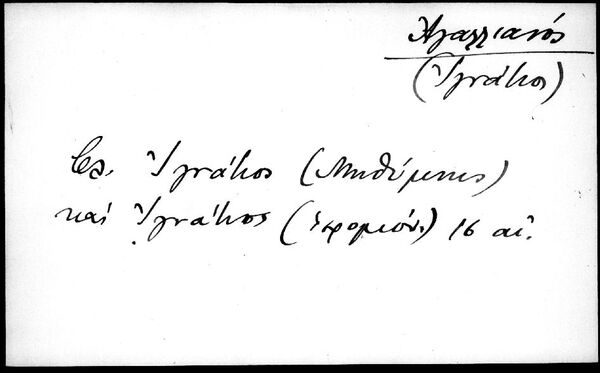 Ἀγαλλιανός
(Ἰγνάτιος)
Βλ. Ἰγνάτιος (Μηθύμνης)
καὶ Ἰγνάτιος (ἱερομόν.) 16 αἰ.